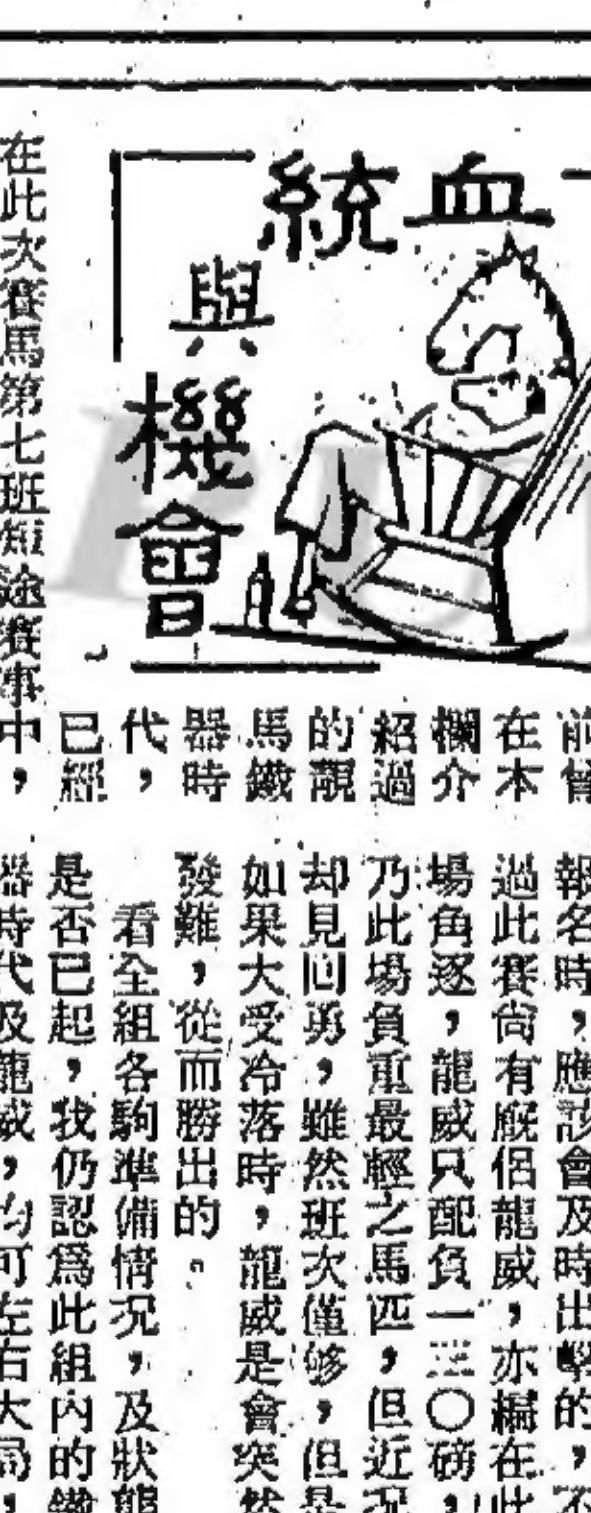 血統
與
機會
在此次賽馬第七班短途賽事中，
前曾
在本
欄介
紹過
的靚
馬鐵
器時
代，
已經
報名時，應該會及時出擊的，不
過此賽尚有廐侶龍威，亦編在此
場角逐，龍威只配負一三〇磅，
乃此場負重最輕之馬匹，但近况
却見回勇，雖然班次僅够，但是
如果大受冷落時，龍威是會突然
發難，從而勝出的。
看全組各駒準備情况，及狀態
是否已起，我仍認爲此組內的鐵
器時代及龍威，均可左右大局，